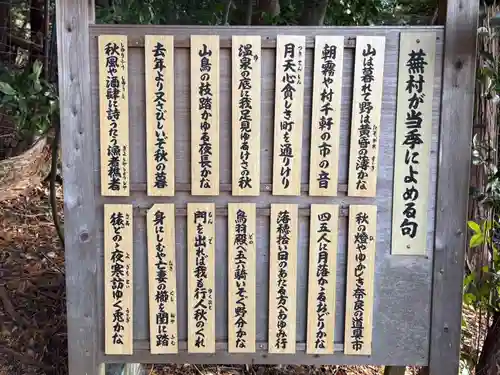 蕪村が当季によめる句
山は暮れて野は黄昏の薄かな
朝霧や村千軒の市の音
月天心貧しき町を通りけり
温泉の底に我足見ゆるけさの秋
山鳥の枝踏かゆる夜長かな
去年より又さびしいぞ秋の暮
秋風や酒肆に詩うたふ漁者樵者
秋の燈やゆかしき奈良の道具市
四五人に月落かゝるおどりかな
落穂拾い日のあたる方へあゆみ行
鳥羽殿へ五六騎いそぐ野分かな
門を出れば我も行人秋のくれ
身にしむや亡妻の櫛を閨に踏
猿どのゝ夜寒訪ゆく兎かな